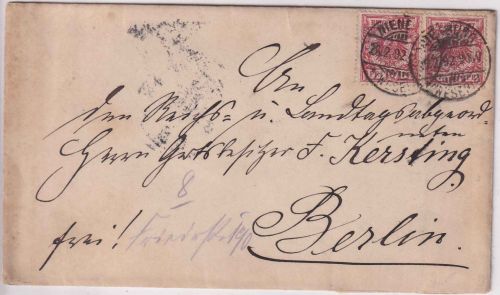 WIENE 24.2.92
An
den Reichs- u. Landtagsabgeord-
neten
Herrn Gutsbesitzer F. Kersting
8
frei!
Berlin.